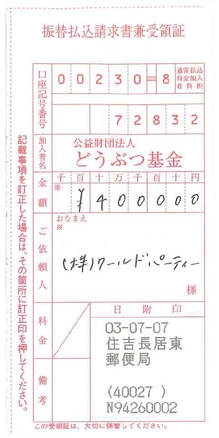 振替払込請求書兼受領証
口座記号番号
00230=8
通常払込料金加入者負担
72832
加入者名
公益財団法人
どうぶつ基金
金額
千百十万千百十円
※
¥400000
ご依頼人
おなまえ
※
(株)ワールドパーティー
様
料金
日附印
03-07-07
住吉長居東
郵便局
(40027)
N94260002
備考
この受領証は、大切に保管してください。
記載事項を訂正した場合は、その箇所に訂正印を押してください。